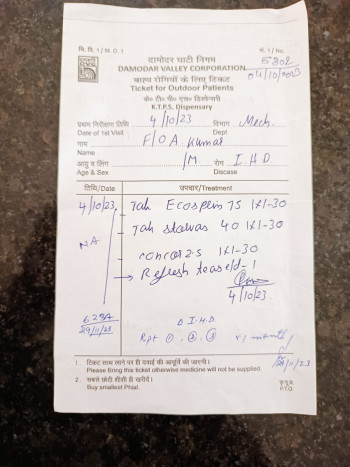 मि. वि. 1 / M. D. 1
दामोदर घाटी निगम
सं. 1 / No.
DAMODAR VALLEY CORPORATION
5302
04/10/2023
बाह्य रोगियों के लिए टिकट
Ticket for Outdoor Patients
के० टी० पी० एस० डिस्पेन्सरी
K.T.P.S. Dispensary
प्रथम निरीक्षण तिथि 4/10/23 विभाग Mech.
Date of 1st Visit Dept
नाम F/O A. Kumar
Name
आयु व लिंग /M रोग I.H.D
Age & Sex Disease
तिथि/Date उपचार/Treatment
4/10/23 Tab Ecosprin 75 1x1-30
Tab 40 1x1-30
NA concor 2.5 1x1-30
→ Refresh tears e/d-1
4/10/23
628A
29/11/23 I.H.D
Rpt ① ② ③ x 1 month
29/11/23
1. टिकट साथ लाने पर ही दवाई की आपूर्ति की जाएगी।
Please Bring this ticket otherwise medicine will not be supplied.
2. सबसे छोटी शीशी ही खरीदें।
Buy smallest Phial.
P.T.O.